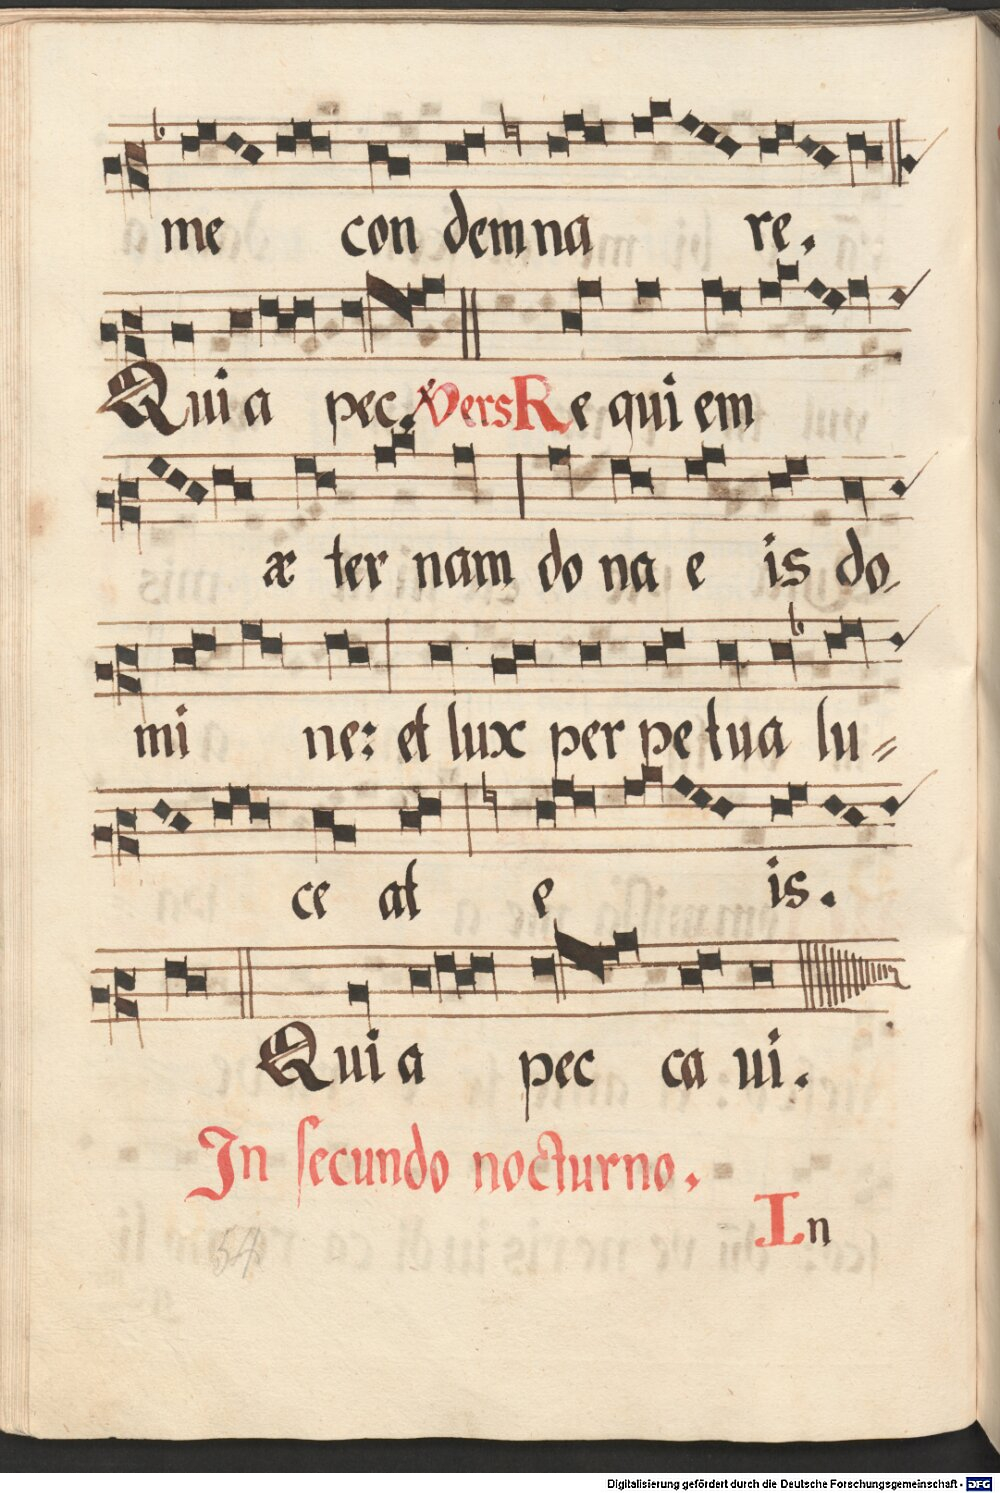 me con demna re.
Qui a pec. Vers Re qui em
æ ter nam do na e is do
mi ne: et lux per pe tua lu=
ce at e is.
Qui a pec ca ui.
In secundo nocturno.
In
54
Digitalisierung gefördert durch die Deutsche Forschungsgemeinschaft - DFG